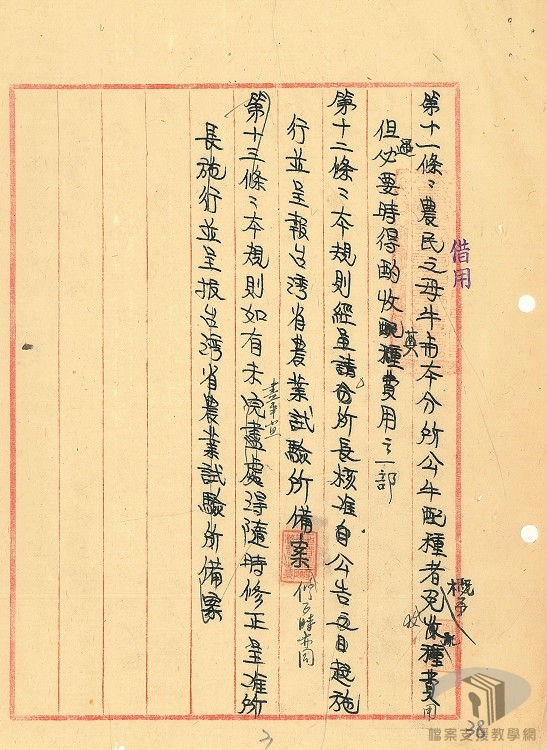 借用
第十一條：農民之母牛由本分所公牛配種者免收種費用
概予
配
但遇必要時得酌收配種費用之一部
第十二條：本規則經呈請分所長核准自公告之日起施
行並呈報台湾省農業試驗所備案
修正時亦同
第十三條：本規則如有未完盡處得隨時修正呈准所
盡事宜
長施行並呈报台湾省農業試驗所備案
38
檔案支援教學網